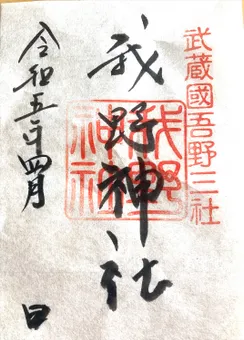 武蔵國吾野三社
我野神社
我野
神社
令和五年四月 日